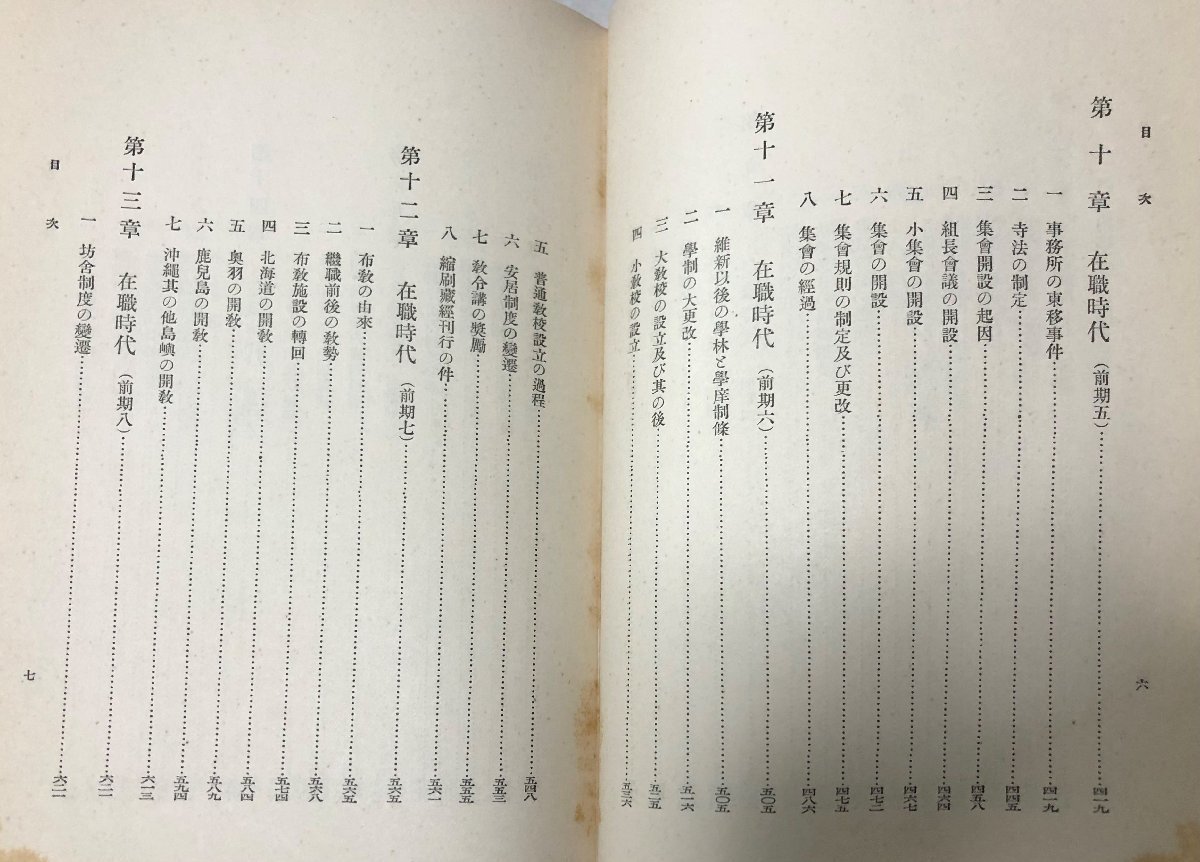 目次
六
第十章 在職時代（前期五）……四一九
一 事務所の東移事件……四一九
二 寺法の制定……四四五
三 集會開設の起因……四五八
四 組長會議の開設……四六四
五 小集會の開設……四六七
六 集會の開設……四七二
七 集會規則の制定及び更改……四七五
八 集會の經過……四八六
第十一章 在職時代（前期六）……五〇五
一 維新以後の學林と學庠制條……五〇五
二 學制の大更改……五一六
三 大敎校の設立及び其の後……五二五
四 小敎校の設立……五三六
五 普通敎校設立の過程……五四八
六 安居制度の變遷……五五三
七 敎令講の奬勵……五五五
八 縮刷藏經刊行の件……五六一
第十二章 在職時代（前期七）……五六五
一 布敎の由來……五六五
二 繼職前後の敎勢……五六八
三 布敎施設の轉回……五七四
四 北海道の開敎……五八四
五 奧羽の開敎……五八九
六 鹿兒島の開敎……五九四
七 沖繩其の他島嶼の開敎……六一三
第十三章 在職時代（前期八）……六二二
一 坊舍制度の變遷……六二二
目次
七